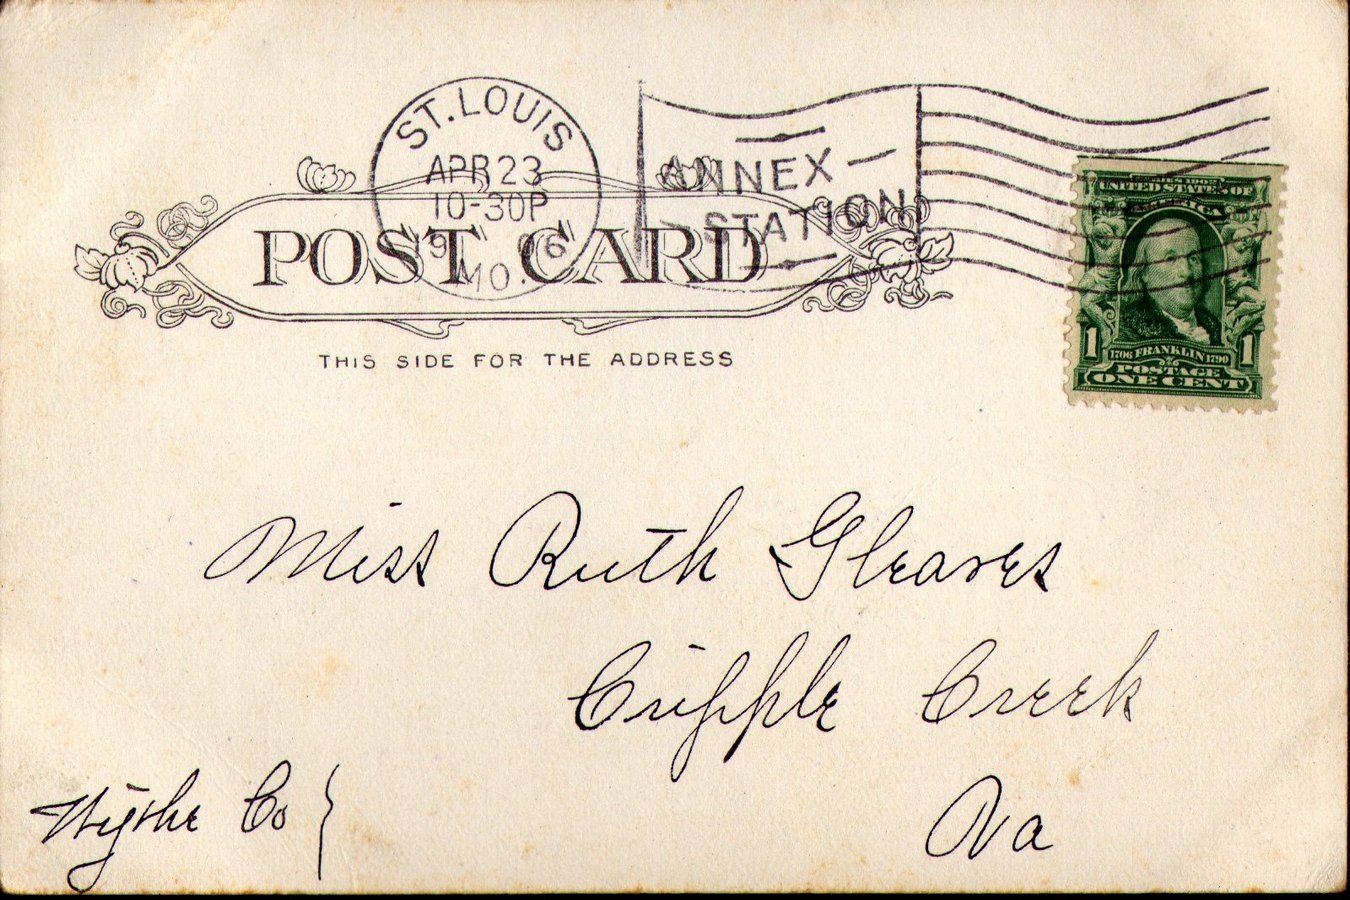 ST. LOUIS
APR 23
10-30P
MO.
ANNEX
STATION
POST CARD
THIS SIDE FOR THE ADDRESS
UNITED STATES OF
AMERICA
1 1706 FRANKLIN 1790 1
POSTAGE
ONE CENT
Miss Ruth Gleaves
Cripple Creek
Wythe Co
Va